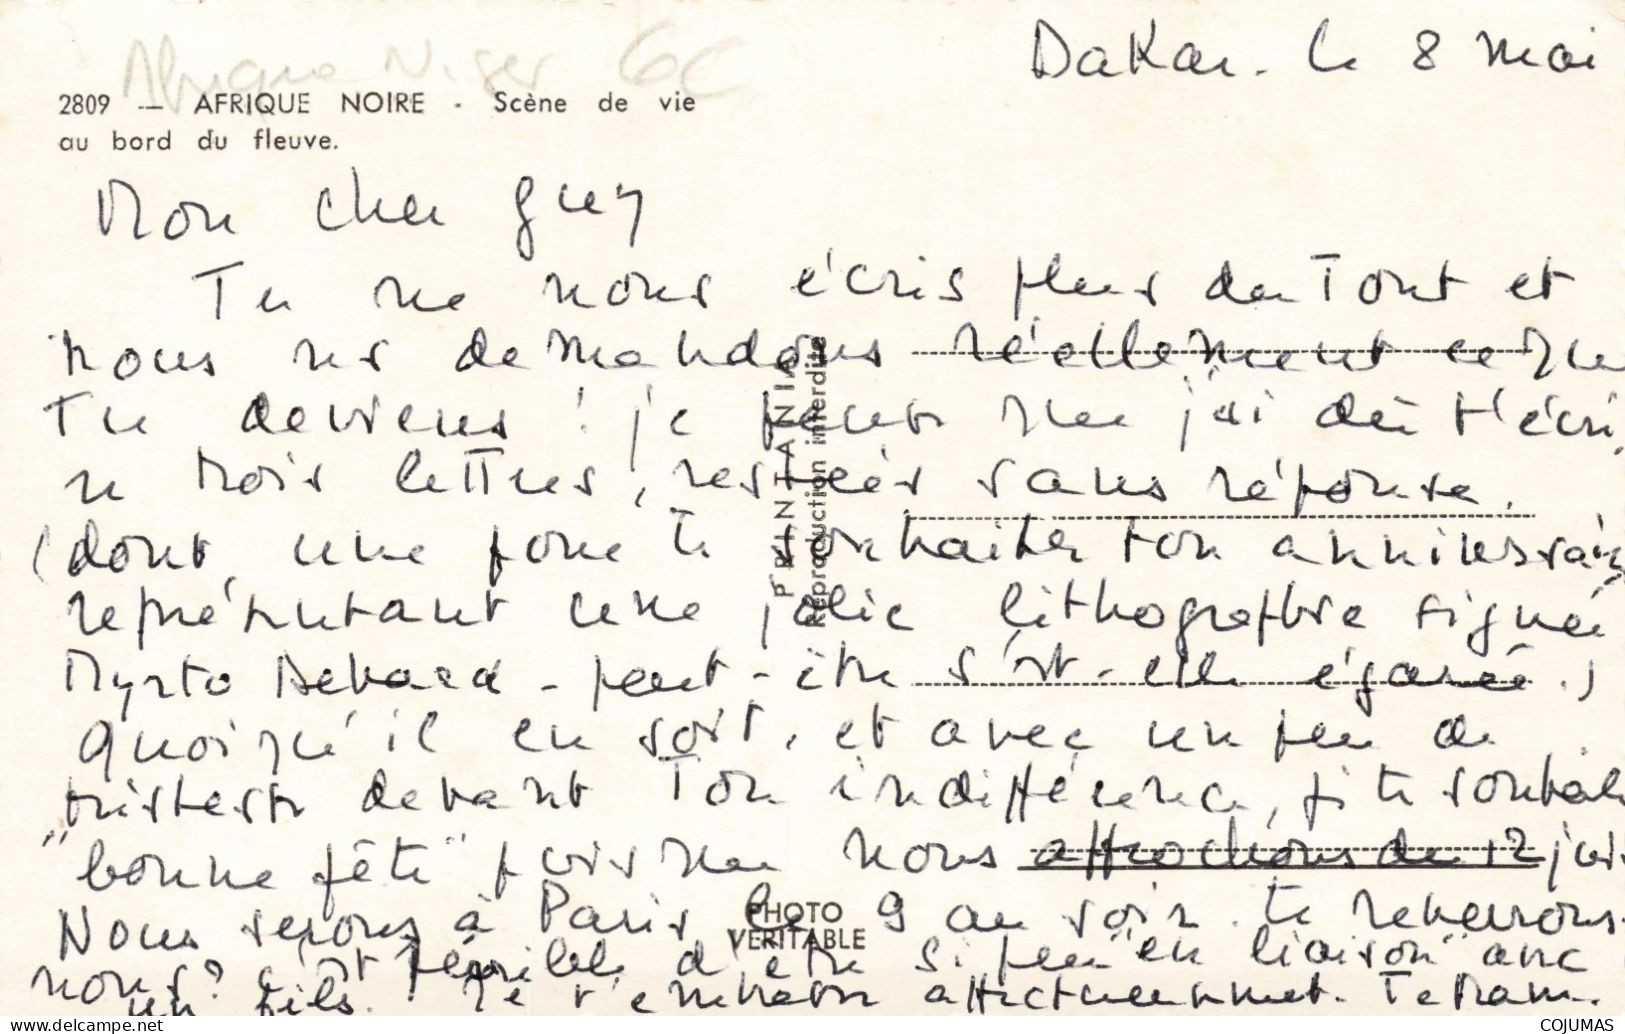 Afrique Niger 6C
Dakar. le 8 mai
2809 — AFRIQUE NOIRE - Scène de vie
au bord du fleuve.
Mon cher Guy
Tu ne nous écris plus du Tout et
nous ns demandons réellement ce que
Tu deviens ! je pense que j'ai dû t'écri
re trois lettres, restées sans réponse.
(dont une pour te souhaiter ton anniversaire
représentant une jolie lithographie signée
Myrto Debard - peut-être s'est-elle égarée.)
Quoiqu'il en soit, et avec un peu de
tristesse devant Ton indifférence, je te souhaite
"bonne fête" puisque nous approchons du 12 juin
Nous serons à Paris le 9 au soir. te reverrons
nous? c'est pénible d'être si peu "en liaison" avec
un fils. Je t'embrasse affectueusement. Ta Mam.
PRINTANIA
Reproduction interdite
PHOTO
VERITABLE
COJUMAS